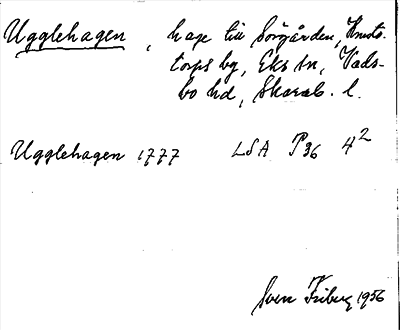 Ugglehagen, hage till Sörgården, Knuts-
torps by, Eks sn, Vads-
bo hd, Skarab. l.
Ugglehagen 1777 LSA P36 4²
Sven Friberg 1956